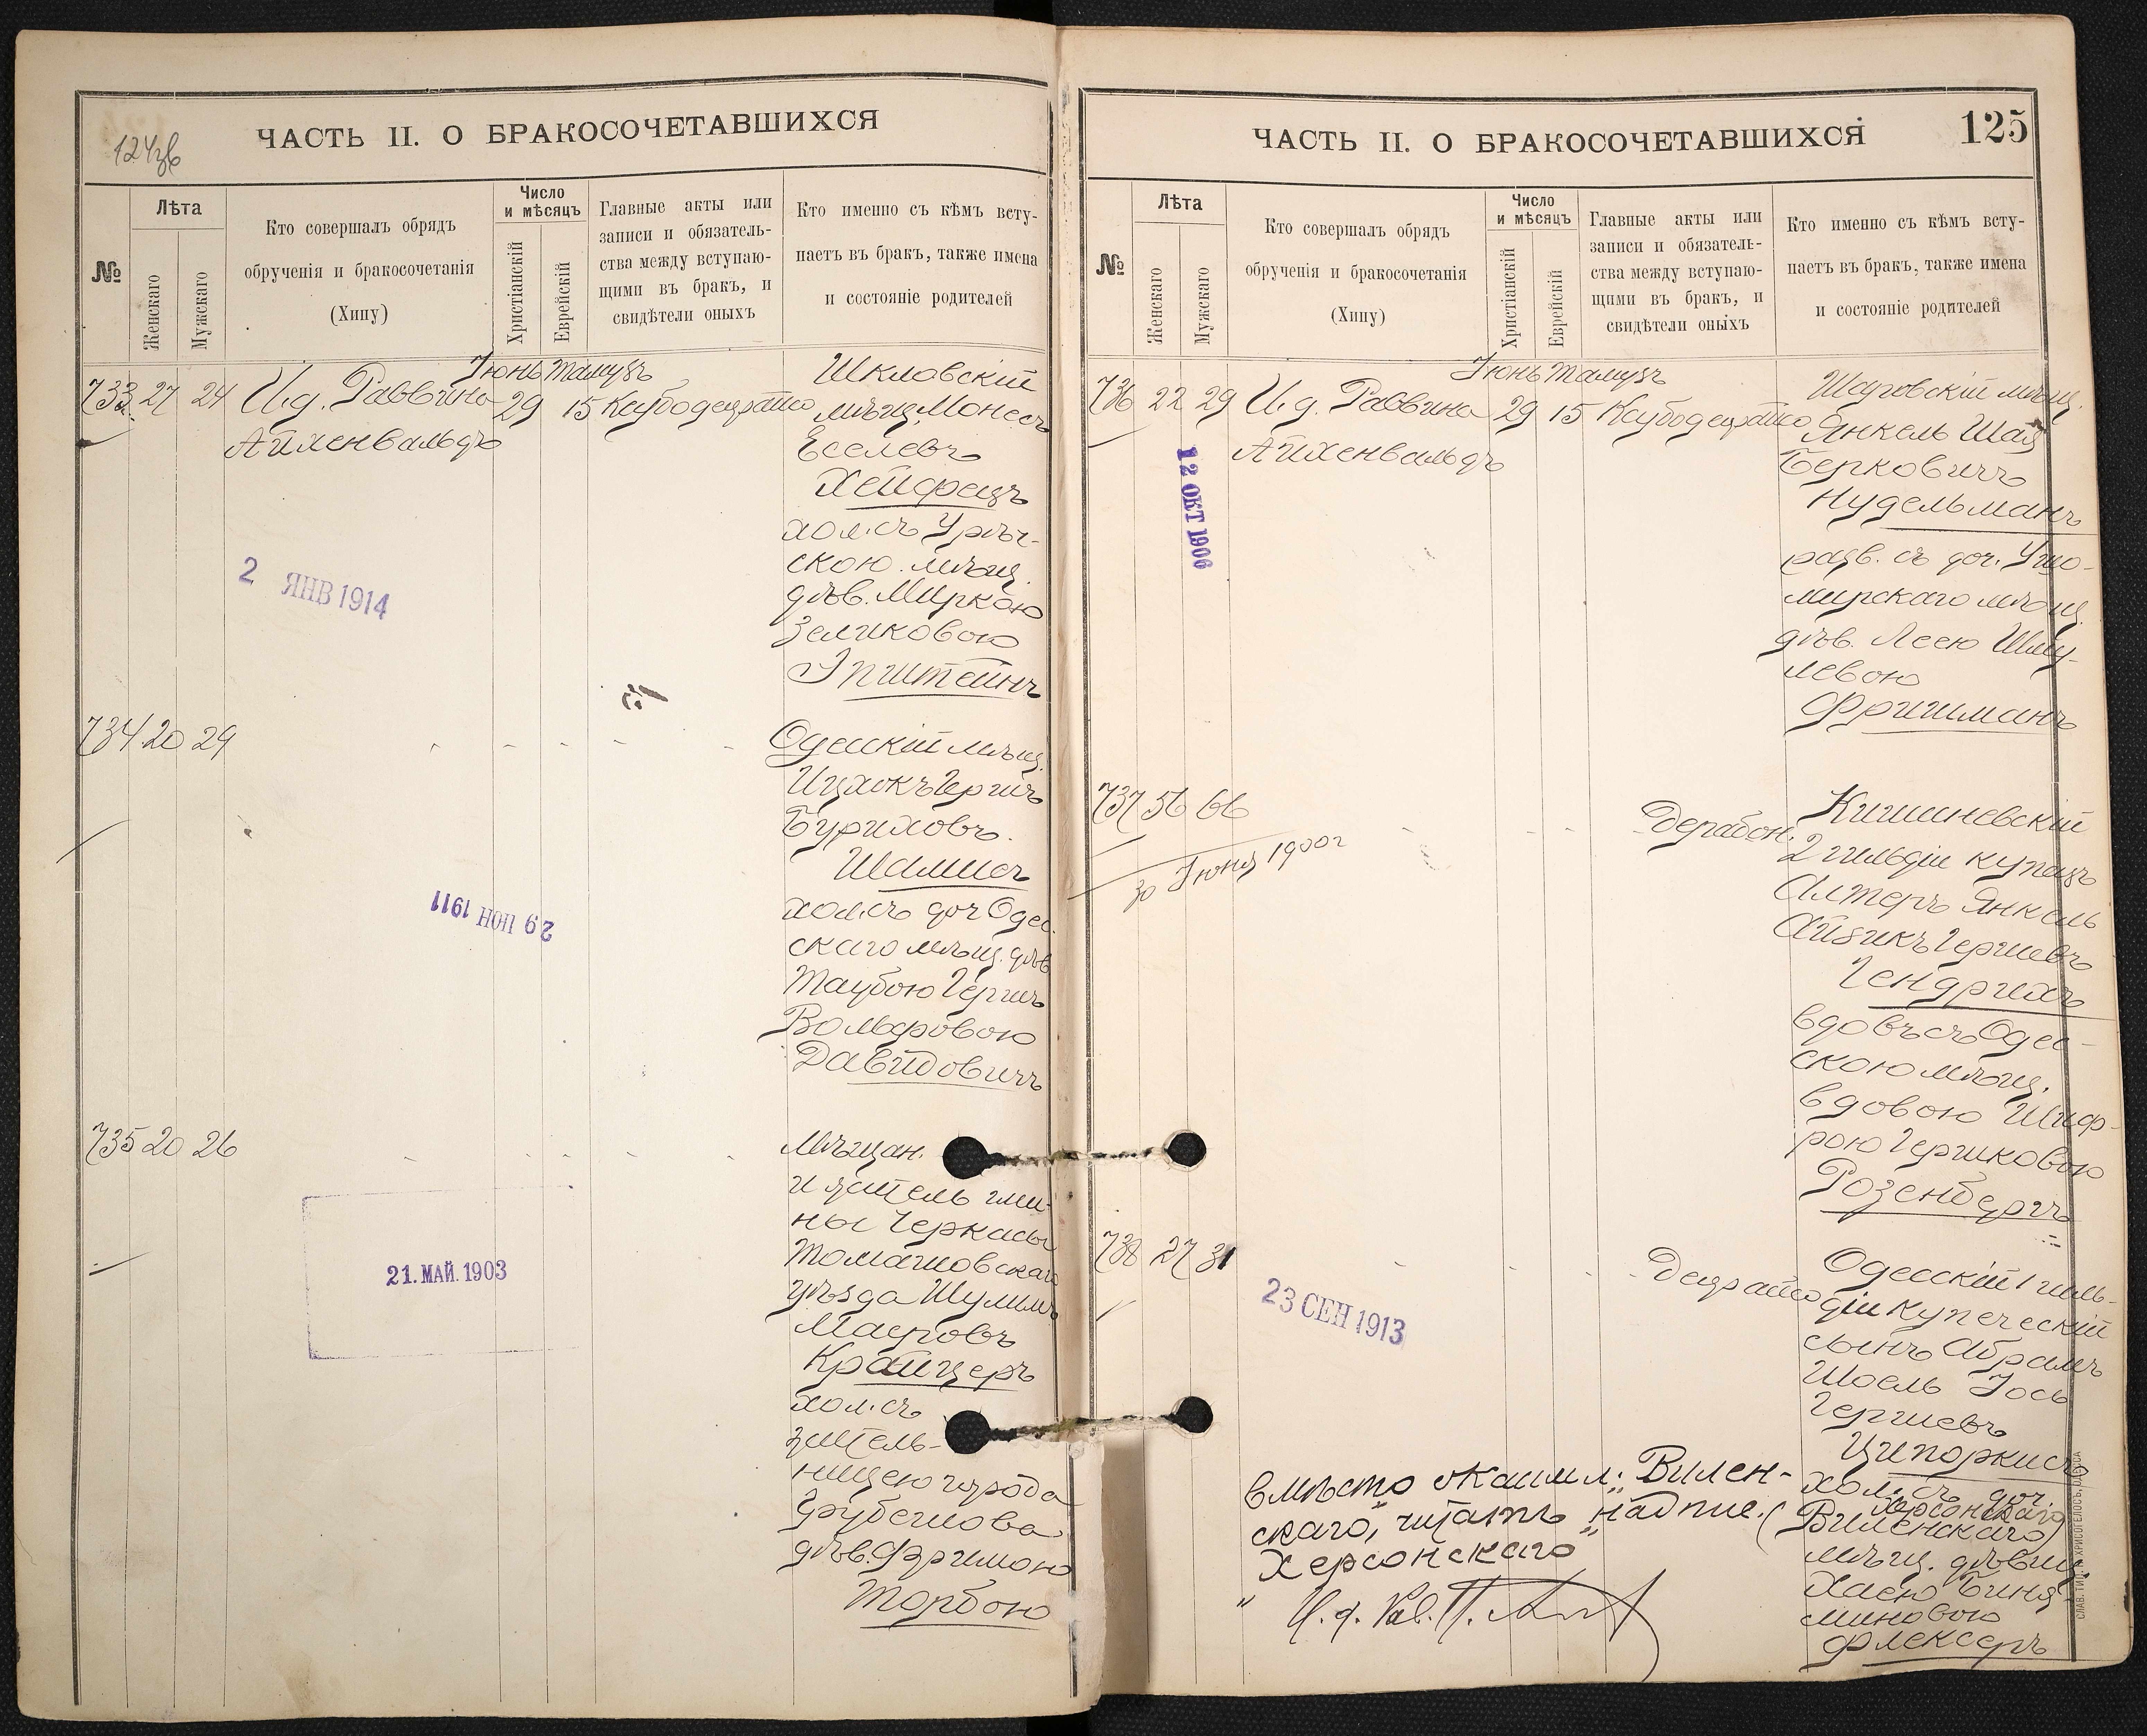 124 зв
ЧАСТЬ II. О БРАКОСОЧЕТАВШИХСЯ
№
Лѣта
Женскаго
Мужскаго
Кто совершалъ обрядъ
обрученія и бракосочетанія
(Хипу)
Число
и мѣсяцъ
Христіанскій
Еврейскій
Главные акты или
записи и обязатель-
ства между вступаю-
щими въ бракъ, и
свидѣтели оныхъ
Кто именно съ кѣмъ всту-
паетъ въ бракъ, также имена
и состояніе родителей
Іюнь Тамузъ
733 27 24 И.д. Раввина 29 15
Айхенвальдъ
Шкловскій
мѣщ. Монесъ
Еселевъ
Хейфецъ
хол. съ
скою мѣщ.
дѣв. Миркою
Зеликовою
Эпштейнъ
2 ЯНВ 1914
734 20 29
Одесскій мѣщ.
Ицхокъ Гершъ
Буриховъ
Шамисъ
хол. съ доч Одес-
скаго мѣщ. дѣв
Таубою Гершъ
Вольфовою
Давидовичъ
29 ІЮН 1911
735 20 26
Мѣщан.
и житель гми-
ны Черкасы
Томашовскаго
уѣзда Шулимъ
Маеровъ
Крайцеръ
хол. съ
житель-
ницею города
Грубешова
дѣв. Фримою
Торбою
21. МАЙ. 1903
125
ЧАСТЬ II. О БРАКОСОЧЕТАВШИХСЯ
№
Лѣта
Женскаго
Мужскаго
Кто совершалъ обрядъ
обрученія и бракосочетанія
(Хипу)
Число
и мѣсяцъ
Христіанскій
Еврейскій
Главные акты или
записи и обязатель-
ства между вступаю-
щими въ бракъ, и
свидѣтели оныхъ
Кто именно съ кѣмъ всту-
паетъ въ бракъ, также имена
и состояніе родителей
Іюнь Тамузъ
736 22 29 И.д. Раввина 29 15
Айхенвальдъ
мѣщ.
Янкель Шая
Берковичъ
Нудельманъ
разв. съ доч. Ушо-
мирскаго мѣщ.
дѣв. Леею Шму-
левою
Фришманъ
12 ОКТ 1906
737 56 66
30 Іюня 1900 г
Дерабон.
Кишиневскій
2 гильдіи купецъ
Алтеръ Янкель
Айзикъ Гершевъ
Гендрихъ
вдовъ съ Одес-
скою мѣщ.
вдовою Шиф-
рою Гершковою
Розенбергъ
738 27 31
Одесскій 1 гиль-
діи купеческій
сынъ Абрамъ
Шоель Іось
Гершевъ
Ципоркисъ
хол. съ доч.
Херсонскаго
(Виленскаго)
мѣщ. дѣвиц.
Хаею Бинь-
миновою
Флексеръ
23 СЕН 1913
вмѣсто „Вилен-
скаго“, читать надпис.
„Херсонскаго“
И. д. Рав.
СЛАВ. ТИП. Н. ХРИСОГЕЛОСЪ, ОДЕССА